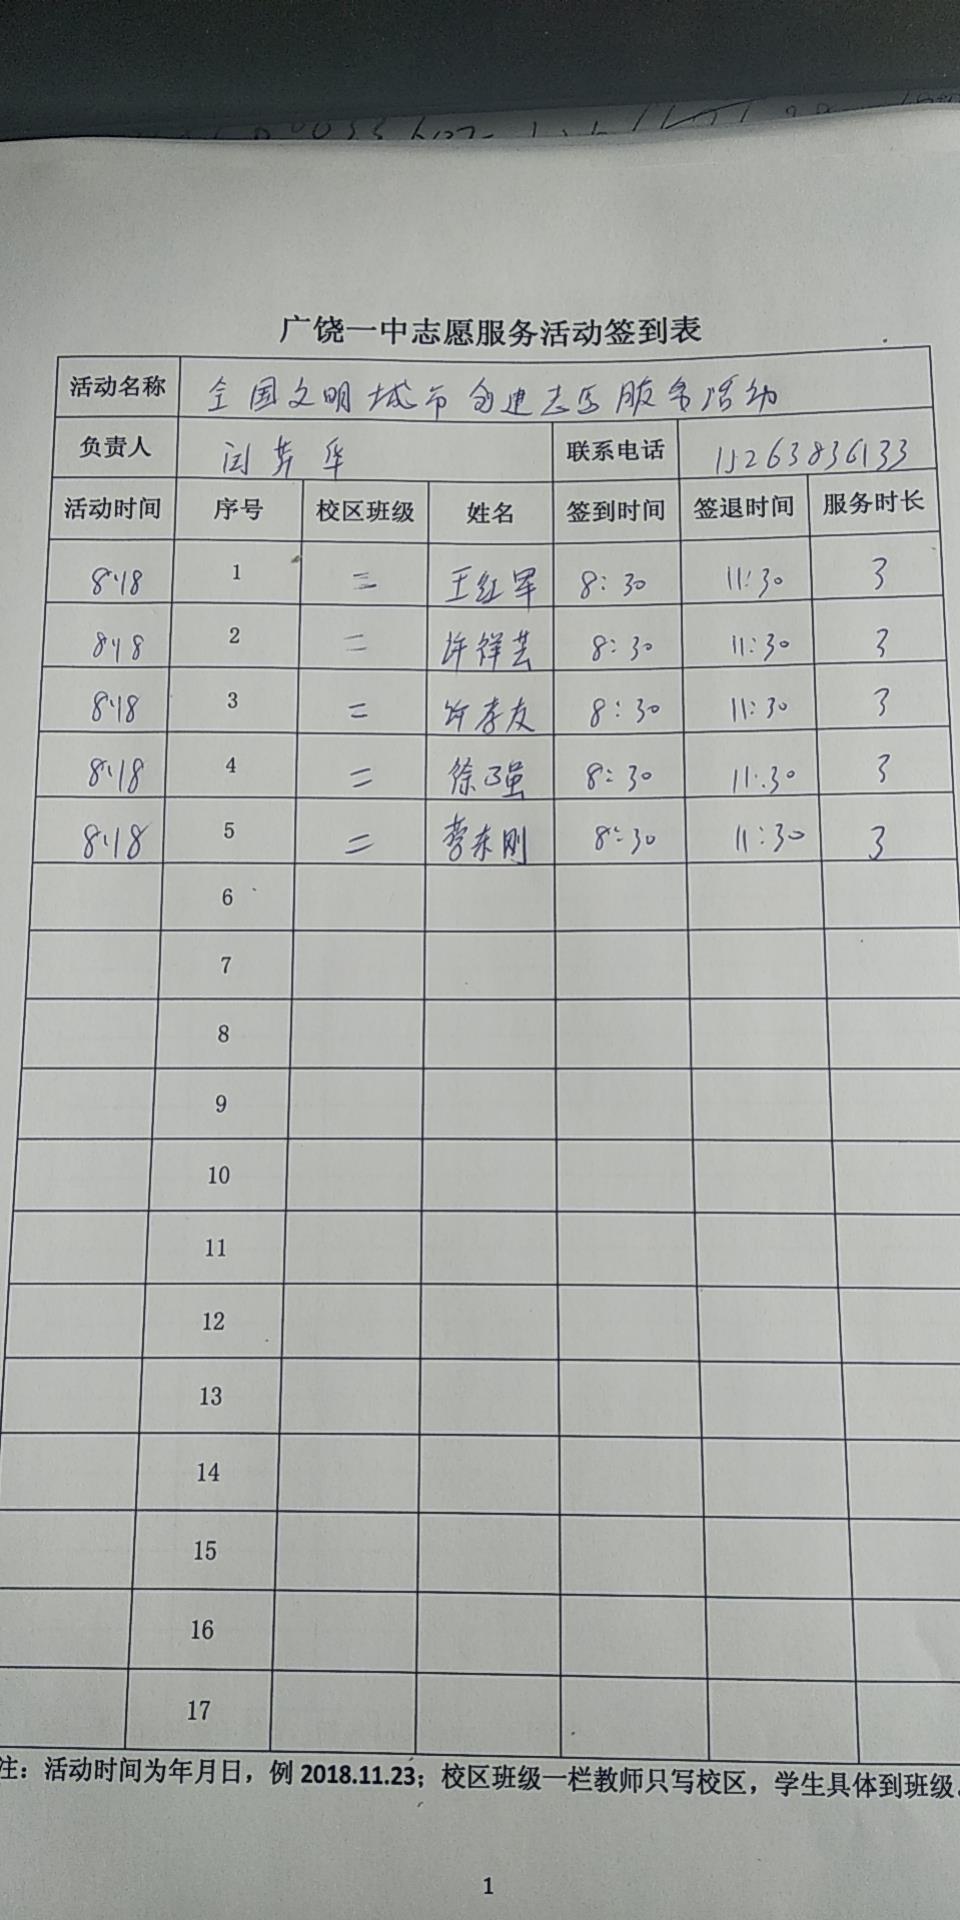 广饶一中志愿服务活动签到表
活动名称 全国文明城市创建志愿服务活动
负责人 联系电话 15263836133
活动时间 序号 校区班级 姓名 签到时间 签退时间 服务时长
8.18 1 二 王红军 8:30 11:30 3
8.18 2 二 许祥芸 8:30 11:30 3
8.18 3 二 许孝友 8:30 11:30 3
8.18 4 二 徐卫强 8:30 11:30 3
8.18 5 二 8:30 11:30 3
6
7
8
9
10
11
12
13
14
15
16
17
注：活动时间为年月日，例 2018.11.23；校区班级一栏教师只写校区，学生具体到班级
1